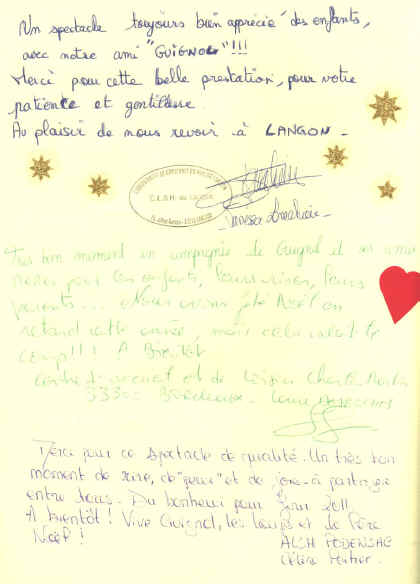 Un spectacle toujours bien apprécié des enfants,
avec notre ami "GUIGNOL"!!!
Merci pour cette belle prestation, pour votre
patience et gentillesse.
Au plaisir de nous revoir à LANGON -
C.L.S.H. de LANGON
Très bon moment en compagnie de Guignol et ses amis
Merci pour les enfants, leurs rires, leurs
parents... Nous avons fêté Noël en
retard cette année, mais cela valait le
coup!!! A Bientôt
Centre d'accueil et de Loisirs Charles Martin
33300 Bordeaux -
Merci pour ce spectacle de qualité. Un très bon
moment de rire, de "peur" et de joie à partager
entre tous. Du bonheur pour 2011
A bientôt! Vive Guignol, les loups et le Père
Noël!
ALSH PODENSAC